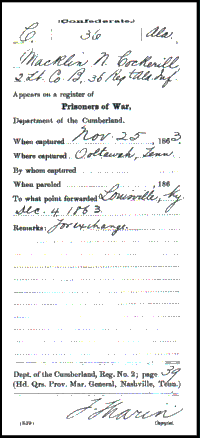 (Confederate.)
C. 36 Ala.
Macklin N. Cockerill
2 Lt. Co. B, 36 Reg't Ala. Inf.
Appears on a register of
Prisoners of War,
Department of the Cumberland.
When captured Nov. 25, 1863.
Where captured Ooltawah, Tenn.
By whom captured
When paroled , 186
To what point forwarded Louisville, Ky
Dec. 4, 1863
Remarks: For exchange.
Dept. of the Cumberland, Reg. No. 2; page 39
(Hd. Qrs. Prov. Mar. General, Nashville, Tenn.)
Marin
Copyist.